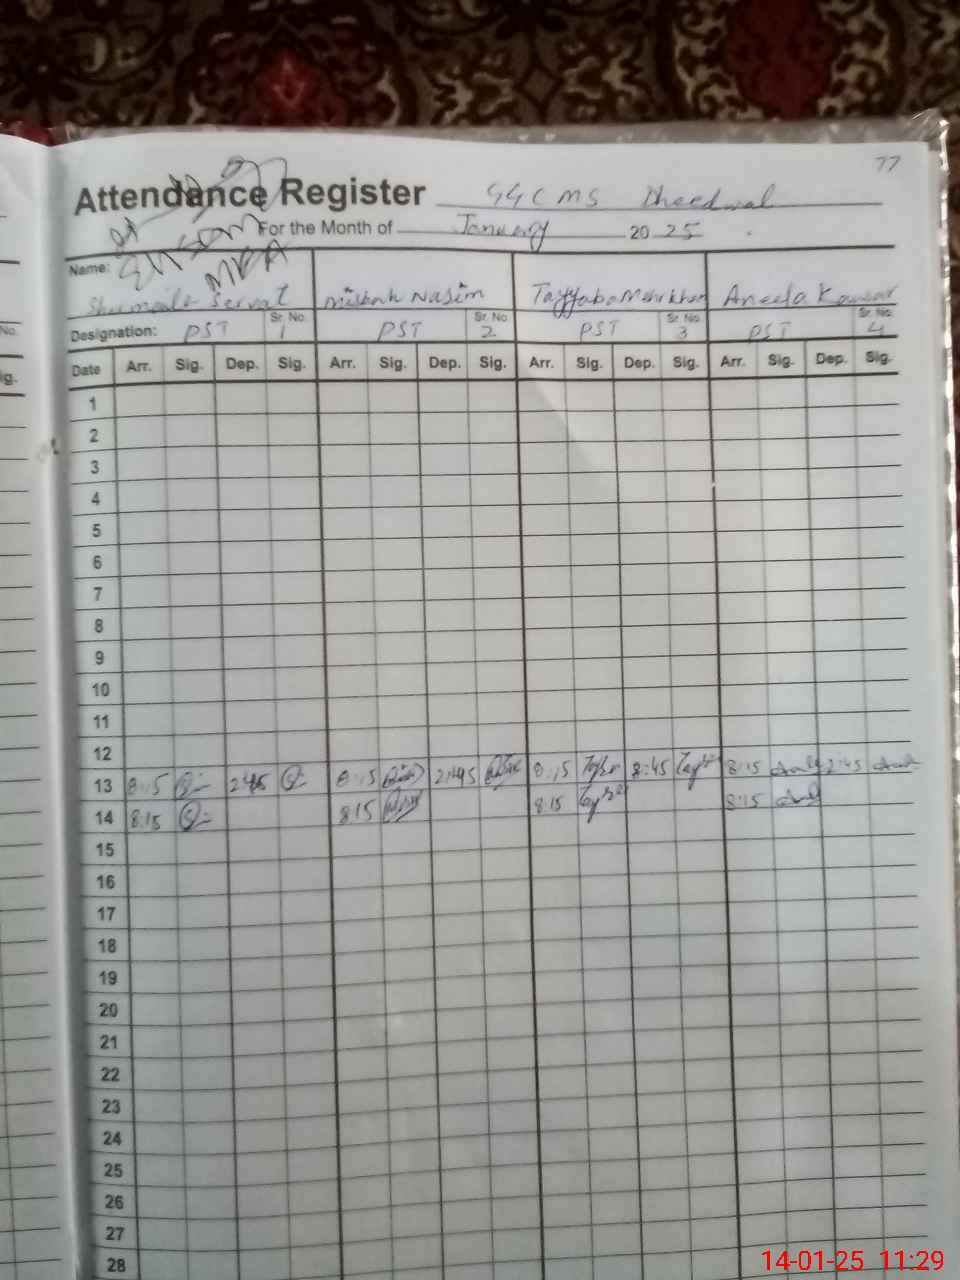 77
Attendance Register GGCMS Dheedwal
For the Month of January 2025
Name:
Servat Misbah Nasim Tayyaba Mehr Khan Aneela Kawsar
Designation: PST Sr. No. 1 PST Sr. No. 2 PST Sr. No. 3 PST Sr. No. 4
Date Arr. Sig. Dep. Sig. Arr. Sig. Dep. Sig. Arr. Sig. Dep. Sig. Arr. Sig. Dep. Sig.
1
2
3
4
5
6
7
8
9
10
11
12
13 8:15 2:45 8:15 2:45 8:15 8:45 8:15 2:45
14 8:15 8:15 8:15 8:15
15
16
17
18
19
20
21
22
23
24
25
26
27
28
No.
ig.
14-01-25 11:29